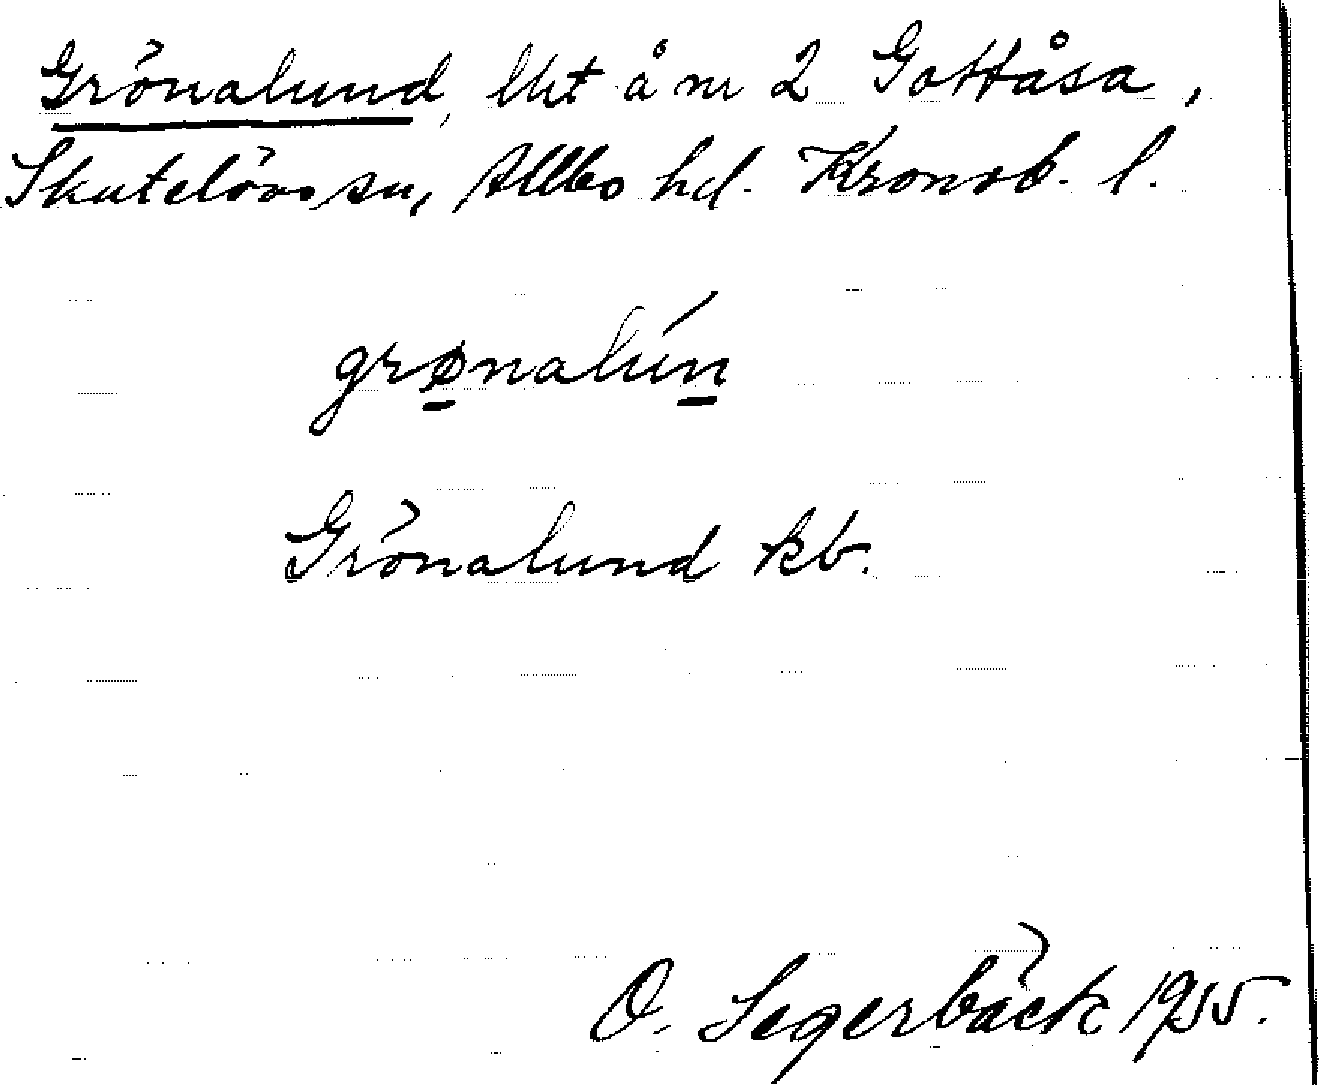 Grönalund, lht å nr 2 Gottåsa,
Skatelövs sn, Allbo hd. Kronob. l.
grønalún
Grönalund kb.
O. Segerbäck 1955.